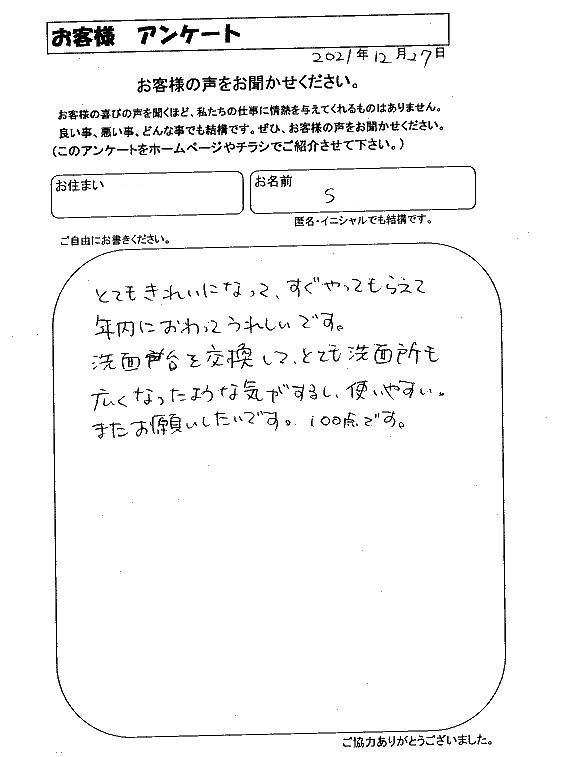 お客様　アンケート
2021年12月27日
お客様の声をお聞かせください。
お客様の喜びの声を聞くほど、私たちの仕事に情熱を与えてくれるものはありません。
良い事、悪い事、どんな事でも結構です。ぜひ、お客様の声をお聞かせください。
(このアンケートをホームページやチラシでご紹介させて下さい。)
お住まい
お名前
S
匿名・イニシャルでも結構です。
ご自由にお書きください。
とてもきれいになって、すぐやってもらえて
年内におわってうれしいです。
洗面台を交換して、とても洗面所も
広くなったような気がするし、使いやすい。
またお願いしたいです。100点です。
ご協力ありがとうございました。